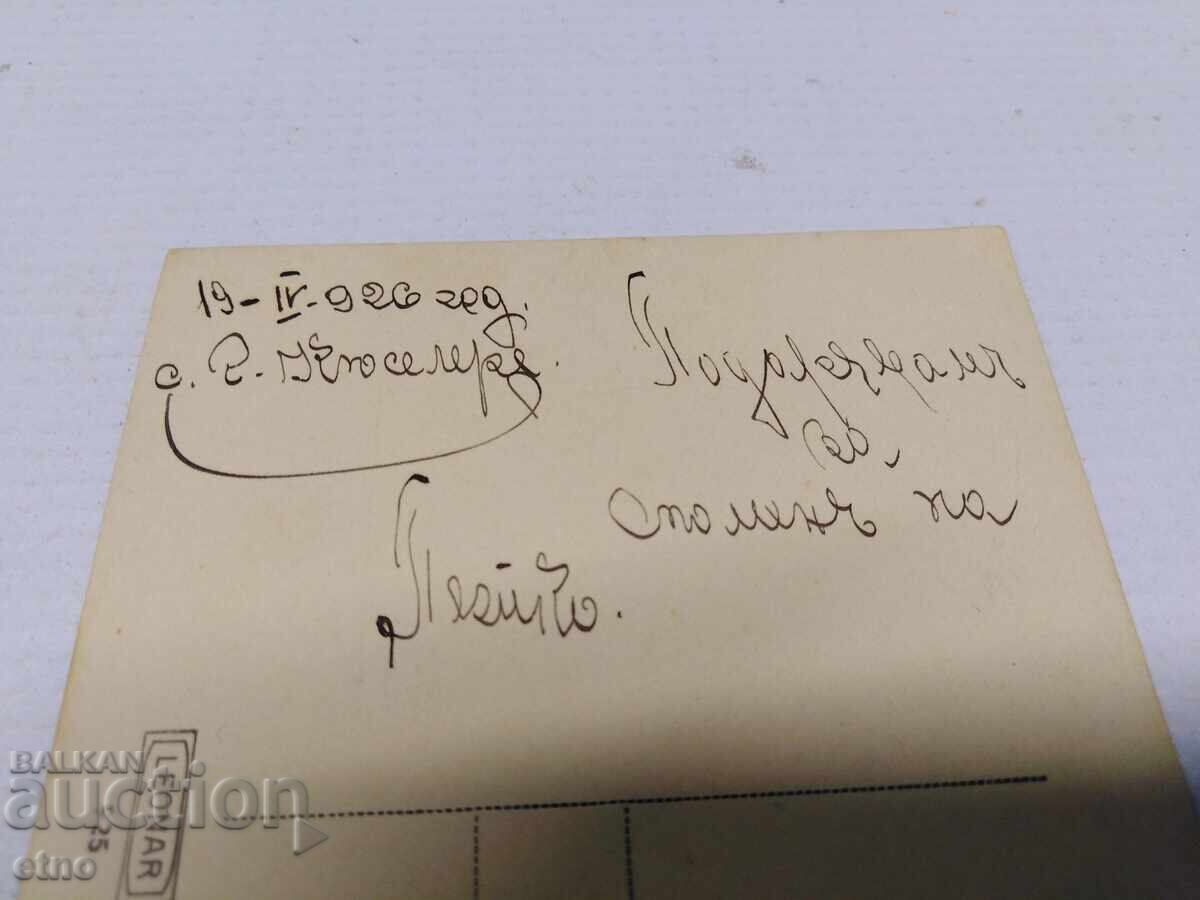 19-IV-926 год.
с. Г. Кюселере.
Подарявамъ
за
споменъ на
Пейко.
LEONAR
25
BALKAN
auction
etno